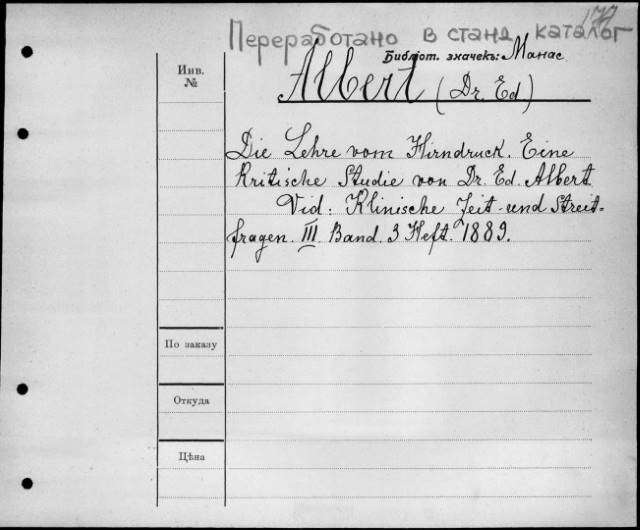 177
Переработано в станд каталог
Библіот. значекъ: Манас
Инв.
№
Albert (Dr. Ed)
Die Lehre vom Hirndruck. Eine
Kritische Studie von Dr. Ed. Albert
Vid: Klinische Zeit- und Streit=
fragen. III. Band. 3 Heft. 1889.
По заказу
Откуда
Цѣна